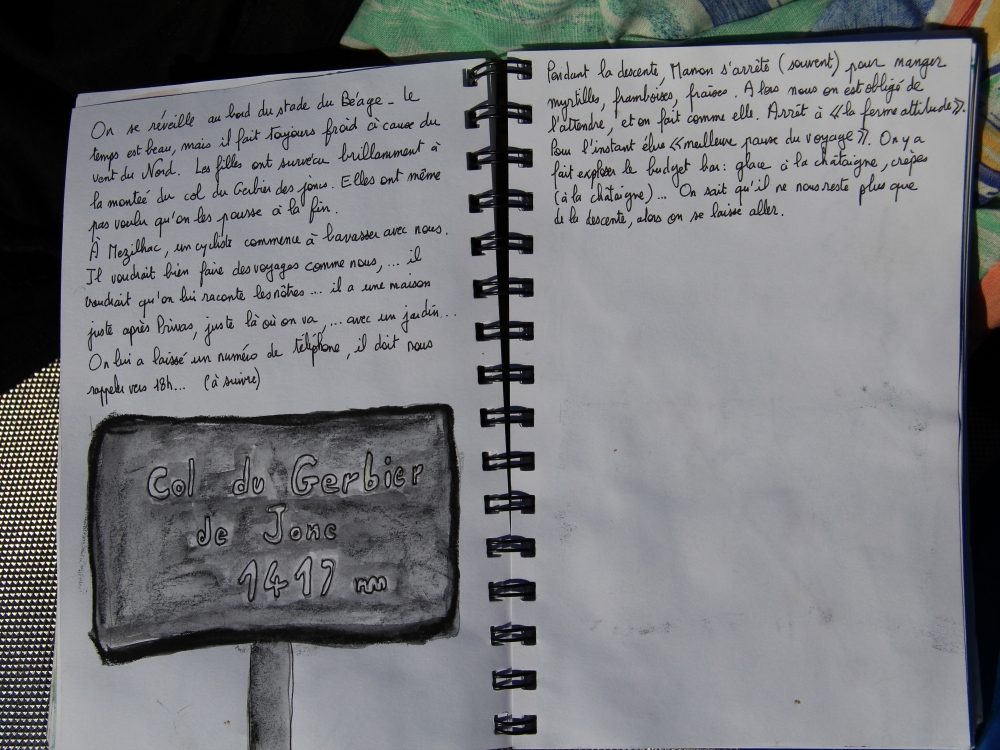 On se réveille au bord du stade du Béage _ Le
temps est beau, mais il fait toujours froid à cause du
vent du Nord. Les filles ont survécu brillamment à
la montée du col du Gerbier des joncs. Elles ont même
pas voulu qu'on les pousse à la fin.
À Mezilhac, un cycliste commence à bavasser avec nous.
Il voudrait bien faire des voyages comme nous, ... il
voudrait qu'on lui raconte les nôtres ... il a une maison
juste après Privas, juste là où on va, ... avec un jardin...
On lui a laissé un numéro de téléphone, il doit nous
rappeler vers 18h... (à suivre)
Col du Gerbier
de Jonc
1417 m
Pendant la descente, Manon s'arrête (souvent) pour manger
myrtilles, framboises, fraises. Alors nous on est obligé de
l'attendre, et on fait comme elle. Arrêt à «la ferme attitude».
Pour l'instant élue «meilleure pause du voyage». On y a
fait exploser le budget bar: glace à la châtaigne, crêpes
(à la châtaigne)... On sait qu'il ne nous reste plus que
de la descente, alors on se laisse aller.